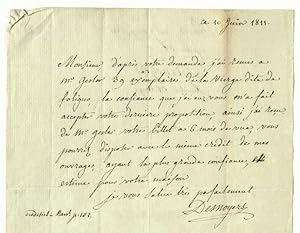 ce 10 Juin 1811.
Monsieur d'après votre demande j'ai remis a
Mr 39 exemplaires de la Vierge dite de
foligno la confiance que j'ai en vous m'a fait
accepté votre derniere proposition ainsi j'ai recue
du Mr votre billet a 6 mois de vue vous
pouvez disposé avec le même crédit de mes
ouvrages ayant la plus grande confiance, et
estime pour votre maison
je vous salue très parfaitement
Desnoyers